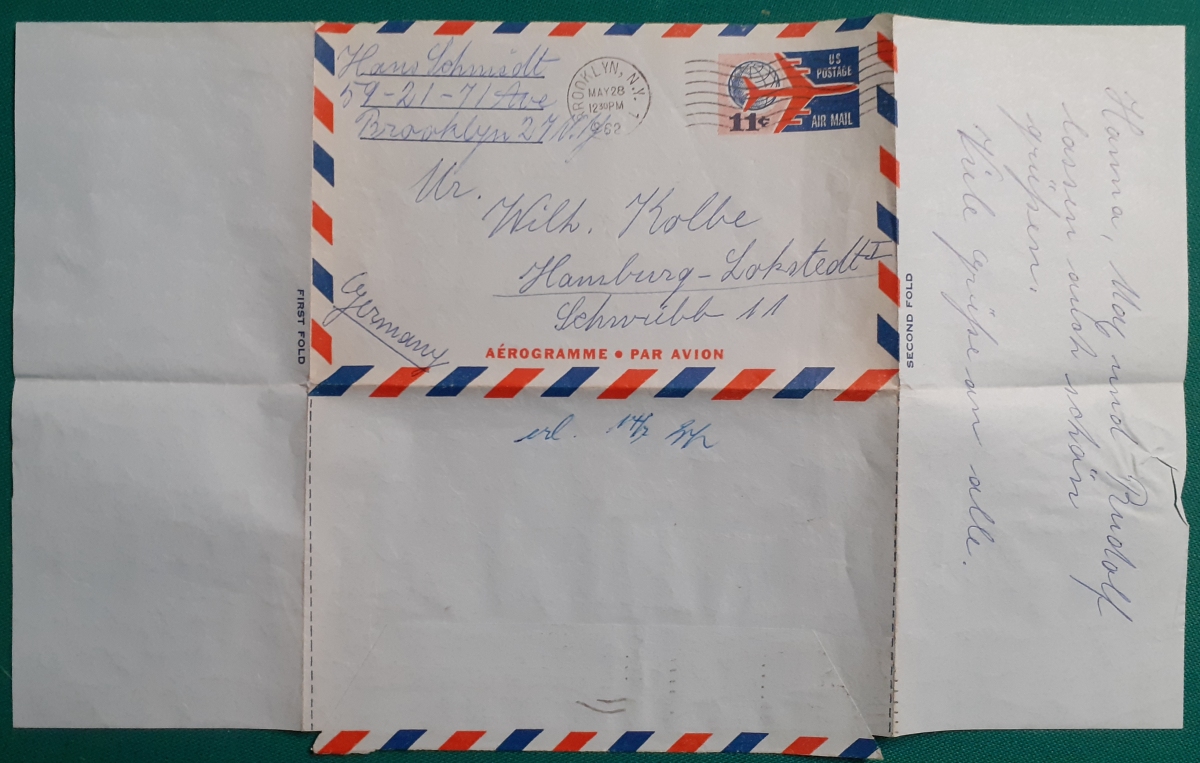 Hans Schmidt
59-21-71 Ave
Brooklyn 27 N.Y.
BROOKLYN, N.Y.
MAY 28
12 30 PM
1962
US
POSTAGE
11¢
AIR MAIL
Mr.
Wilh. Kolbe
Hamburg-Lokstedt I
Schwübb 11
Germany
AÉROGRAMME • PAR AVION
FIRST FOLD
SECOND FOLD
erl.
Hanna, Mag und Rudolf
lassen auch schön
grüßen.
Viele Grüße an alle.